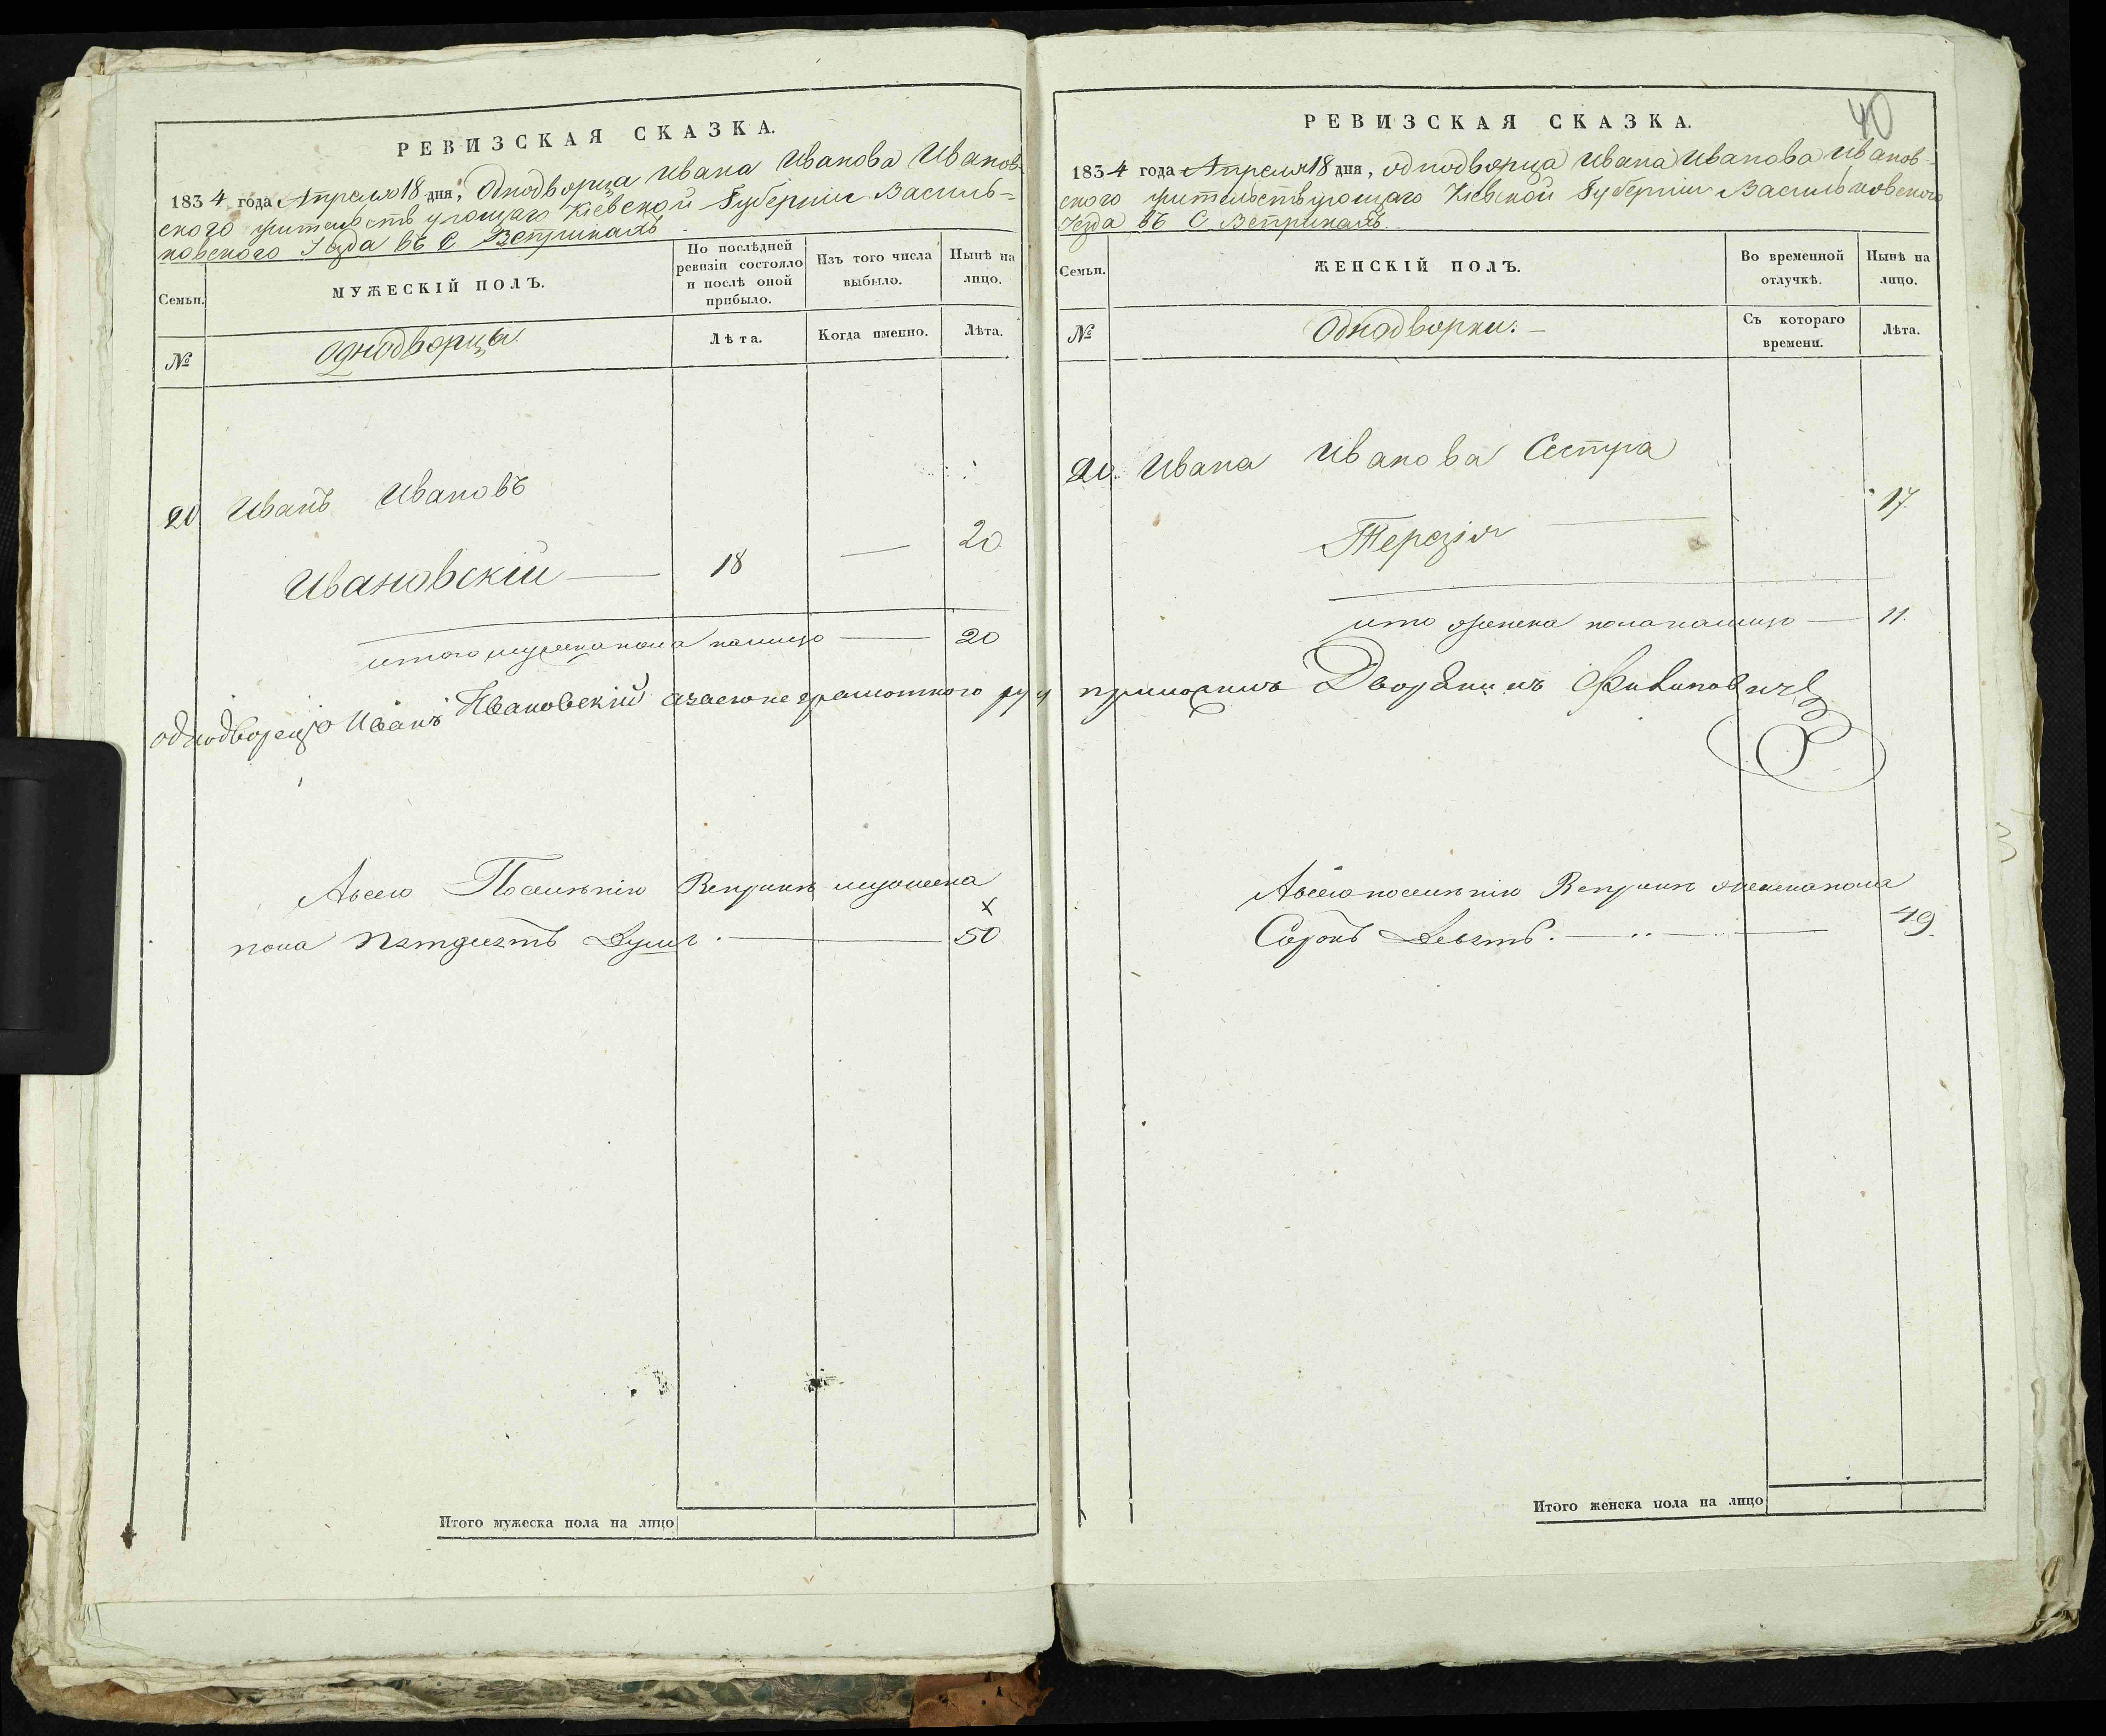 РЕВИЗСКАЯ СКАЗКА.
1834 года Апреля 18 дня, Однодворца Ивана Иванова Иванов-
ского жительствующаго Кіевской Губерніи Василь-
ковского Уезда въ С Веприкахъ
Семьи.
МУЖЕСКІЙ ПОЛЪ.
По послѣдней ревизіи состояло и послѣ оной прибыло.
Изъ того числа выбыло.
Нынѣ на лицо.
№
Однодворцы
Лѣта.
Когда именно.
Лѣта.
20 Иванъ Ивановъ
Ивановскій — 18 — 20
итого мужеска пола налицо — 20
однодворецъ Иванъ Ивановскій азаего не грамотного руку
Авсего Поселенію Веприкъ мужеска
пола пятдесятъ Душъ. — 50
Итого мужеска пола на лицо
40
РЕВИЗСКАЯ СКАЗКА.
1834 года Апреля 18 дня, однодворца Ивана Иванова Иванов-
ского жительствующаго Кіевской Губерніи Васильковского
Уезда въ С Веприкахъ.
Семьи.
ЖЕНСКІЙ ПОЛЪ.
Во временной отлучкѣ.
Нынѣ на лицо.
№
Однодворки. —
Съ котораго времени.
Лѣта.
20. Ивана Иванова Сестра
Терезія — 17.
женска пола налицо — 11.
приложилъ Дворянинъ Филиповичъ
Авсего поселенію Веприкъ женска пола
Сорокъ Девять. — 49.
Итого женска пола на лицо